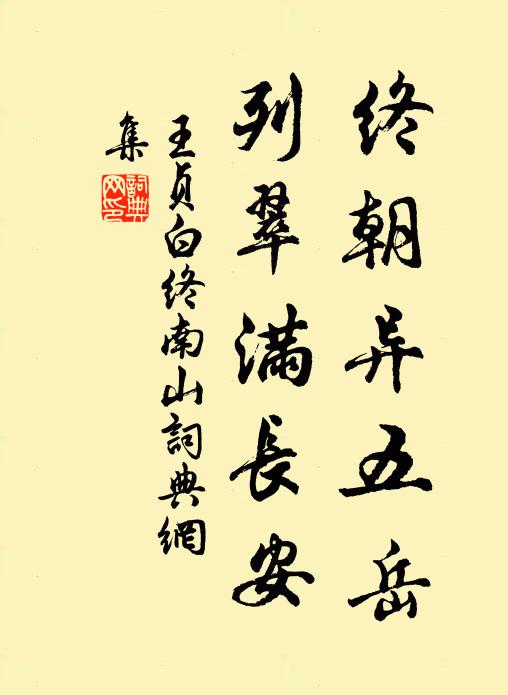 終朝异五岳
列翠滿長安
王貞白終南山詞典網
集
詞典
网印